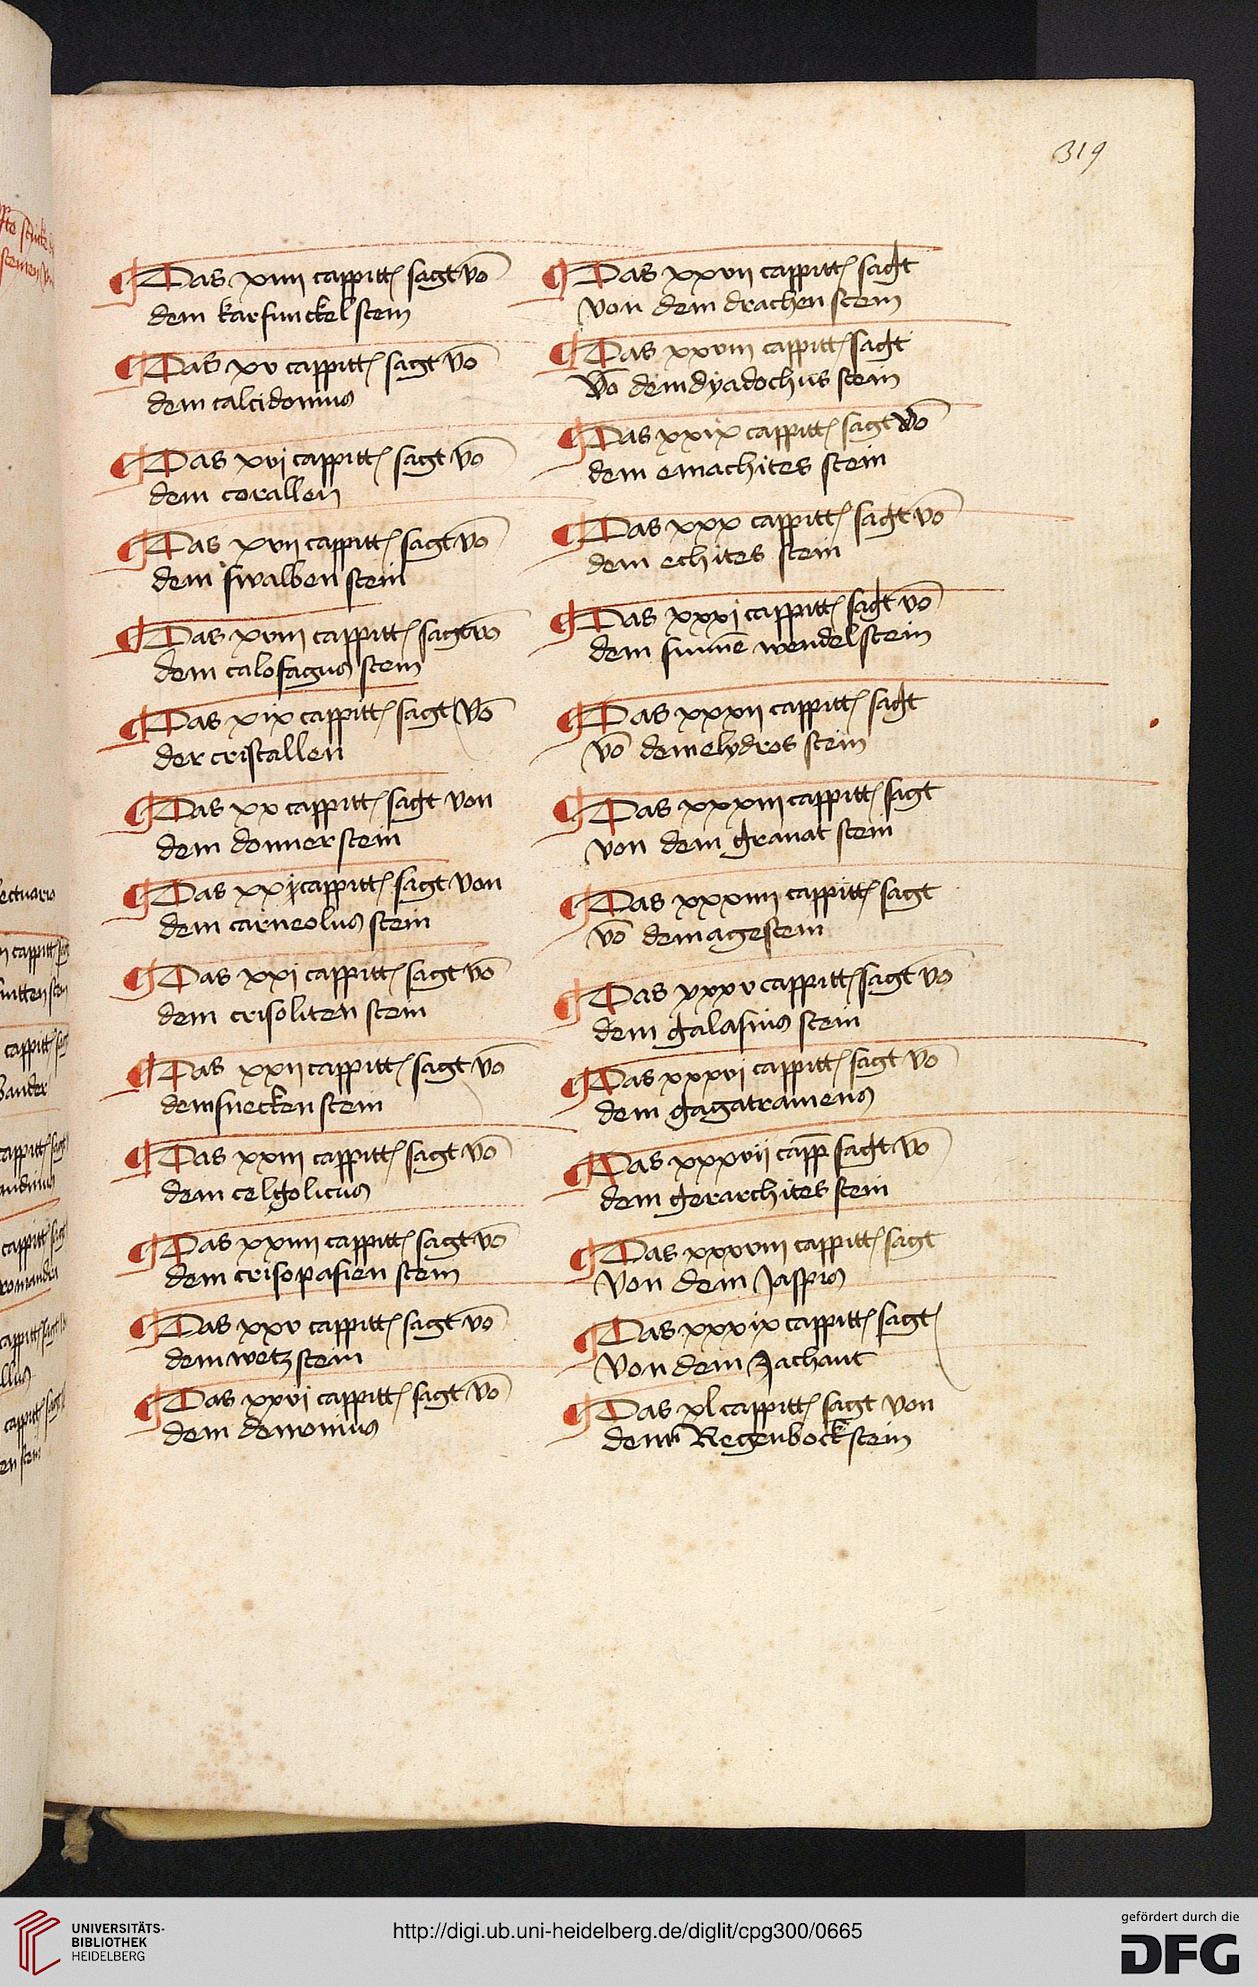 319
¶ Das xiiii cappittꝭ sagt vō
dem karfunckel stein
¶ Das xv cappittꝭ sagt vō
dem calcidonius
¶ Das xvj cappittꝭ sagt vō
dem corallen
¶ Das xvii cappittꝭ sagt vō
dem swalben stein
¶ Das xviii cappittꝭ sagt vō
dem calofagus stein
¶ Das xix cappittꝭ sagt Vō
der cristallen
¶ Das xx cappittꝭ sagt von
dem donner stein
¶ Das xxj cappittꝭ sagt von
dem carneolus stein
¶ Das xxi cappittꝭ sagt vō
dem crisoliten stein
¶ Das xxii cappittꝭ sagt vō
dem snecken stein
¶ Das xxiii cappittꝭ sagt vō
dem celgolicus
¶ Das xxiiii cappittꝭ sagt vō
dem crisopasien stein
¶ Das xxv cappittꝭ sagt vō
dem wetz stein
¶ Das xxvi cappittꝭ sagt vō
dem demonius
¶ Das xxvii cappittꝭ sagt
von dem drachen stein
¶ Das xxviii cappittꝭ sagt
Vō dem dyadochus stein
¶ Das xxix cappittꝭ sagt vō
dem emachites stein
¶ Das xxx cappittꝭ sagt vō
dem echites stein
¶ Das xxxi cappittꝭ sagt vō
dem sunnē wendel stein
¶ Das xxxii cappittꝭ sagt
vō dem elydros stein
¶ Das xxxiii cappittꝭ sagt
von dem granat stein
¶ Das xxxiiii cappittꝭ sagt
vō dem agestein
¶ Das xxxv cappittꝭ sagt vō
dem galasius stein
¶ Das xxxvi cappittꝭ sagt vō
dem gagatramens
¶ Das xxxvii capp̄ sagt vō
dem gerarchites stein
¶ Das xxxviii cappittꝭ sagt
Von dem Jaspis
¶ Das xxxix cappittꝭ sagt
Von dem Jachant
¶ Das xl cappittꝭ sagt von
dem Regenbock stein
UNIVERSITÄTS-
BIBLIOTHEK
HEIDELBERG
http://digi.ub.uni-heidelberg.de/diglit/cpg300/0665
gefördert durch die
DFG